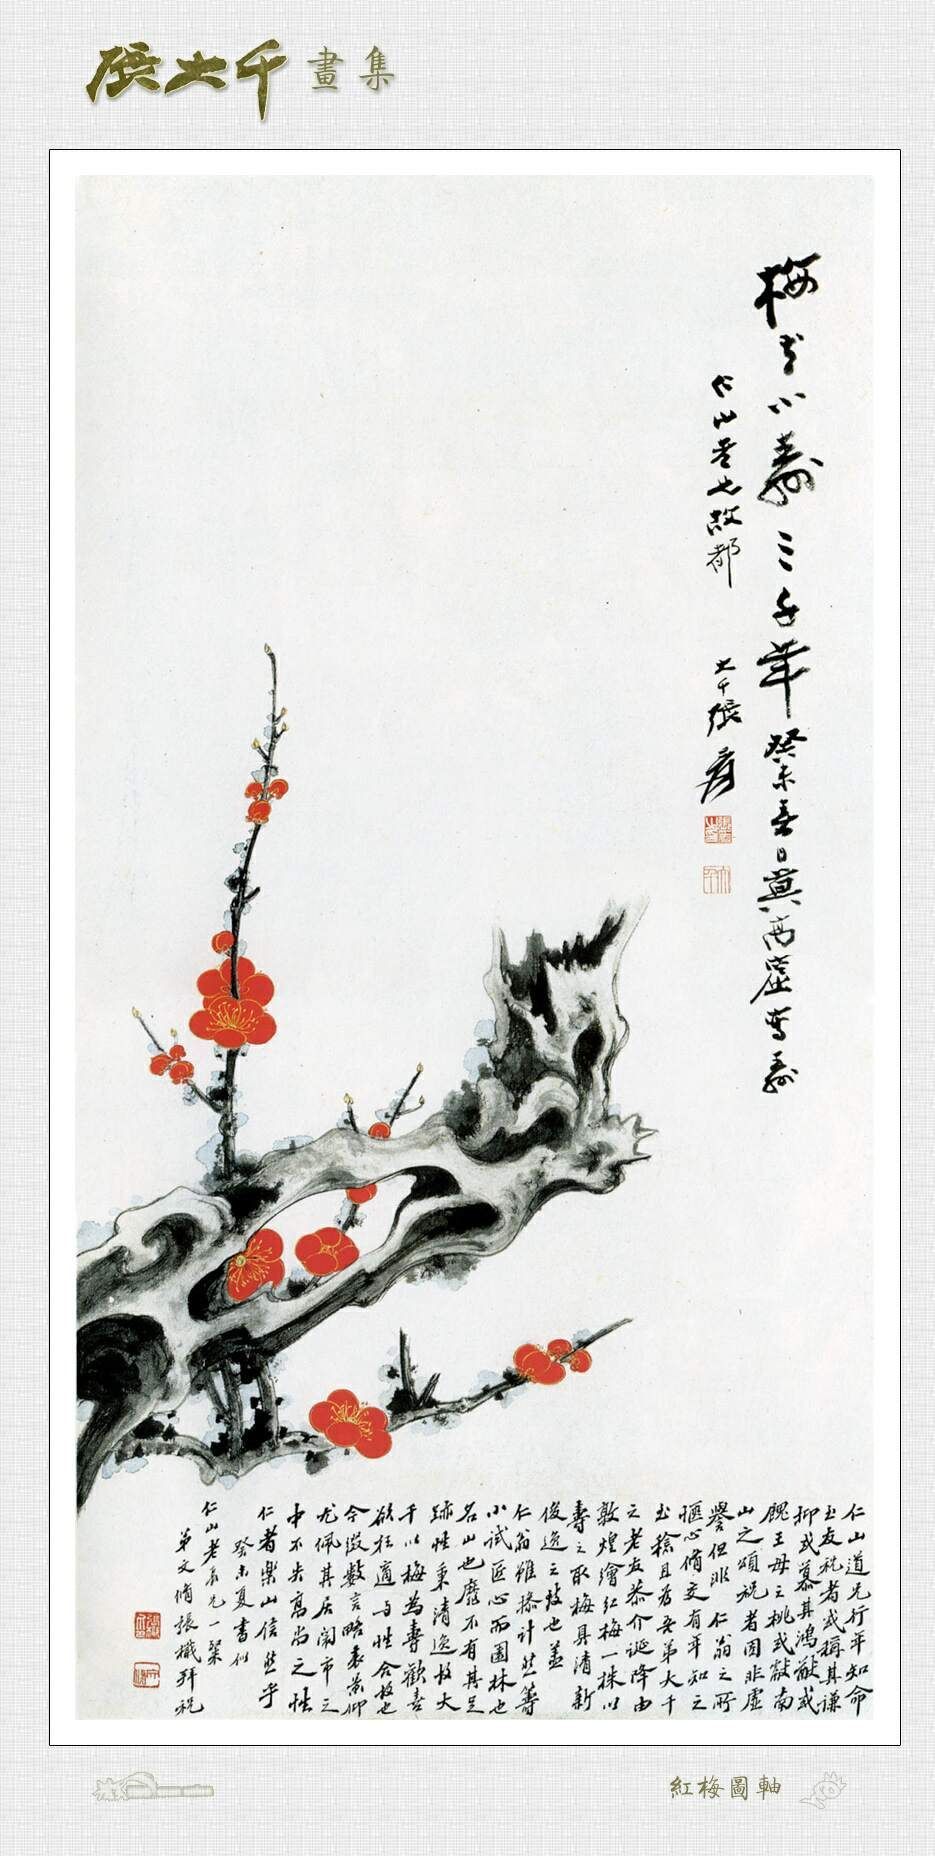 張大千 畫集
梅者小壽三千年 癸未春日莫高窟寫壽
仁山老兄故都
大千張爰
仁山道兄行年知命
玉友祝者或稱其謙
抑或慕其鴻猷或
醜王母之桃或獻南
山之頌祝者固非虛
譽但非 仁翁之所
愜心脩交有年知之
尤稔且為吾弟大千
之老友恭介誕降由
敦煌繪紅梅一株以
壽之取梅具清新
俊逸之致也蓋
仁翁雖操計然籌
小試匠心而園林也
名山也靡不有其足
跡性秉清逸故大
千以梅為壽歡喜
欲狂適與性合故也
今徵數言略表景仰
尤佩其居鬧市之
中不失高尚之性
仁者樂山信然乎
癸未夏書似
仁山老哥兄一粲
弟文脩張楫拜祝
紅梅圖軸